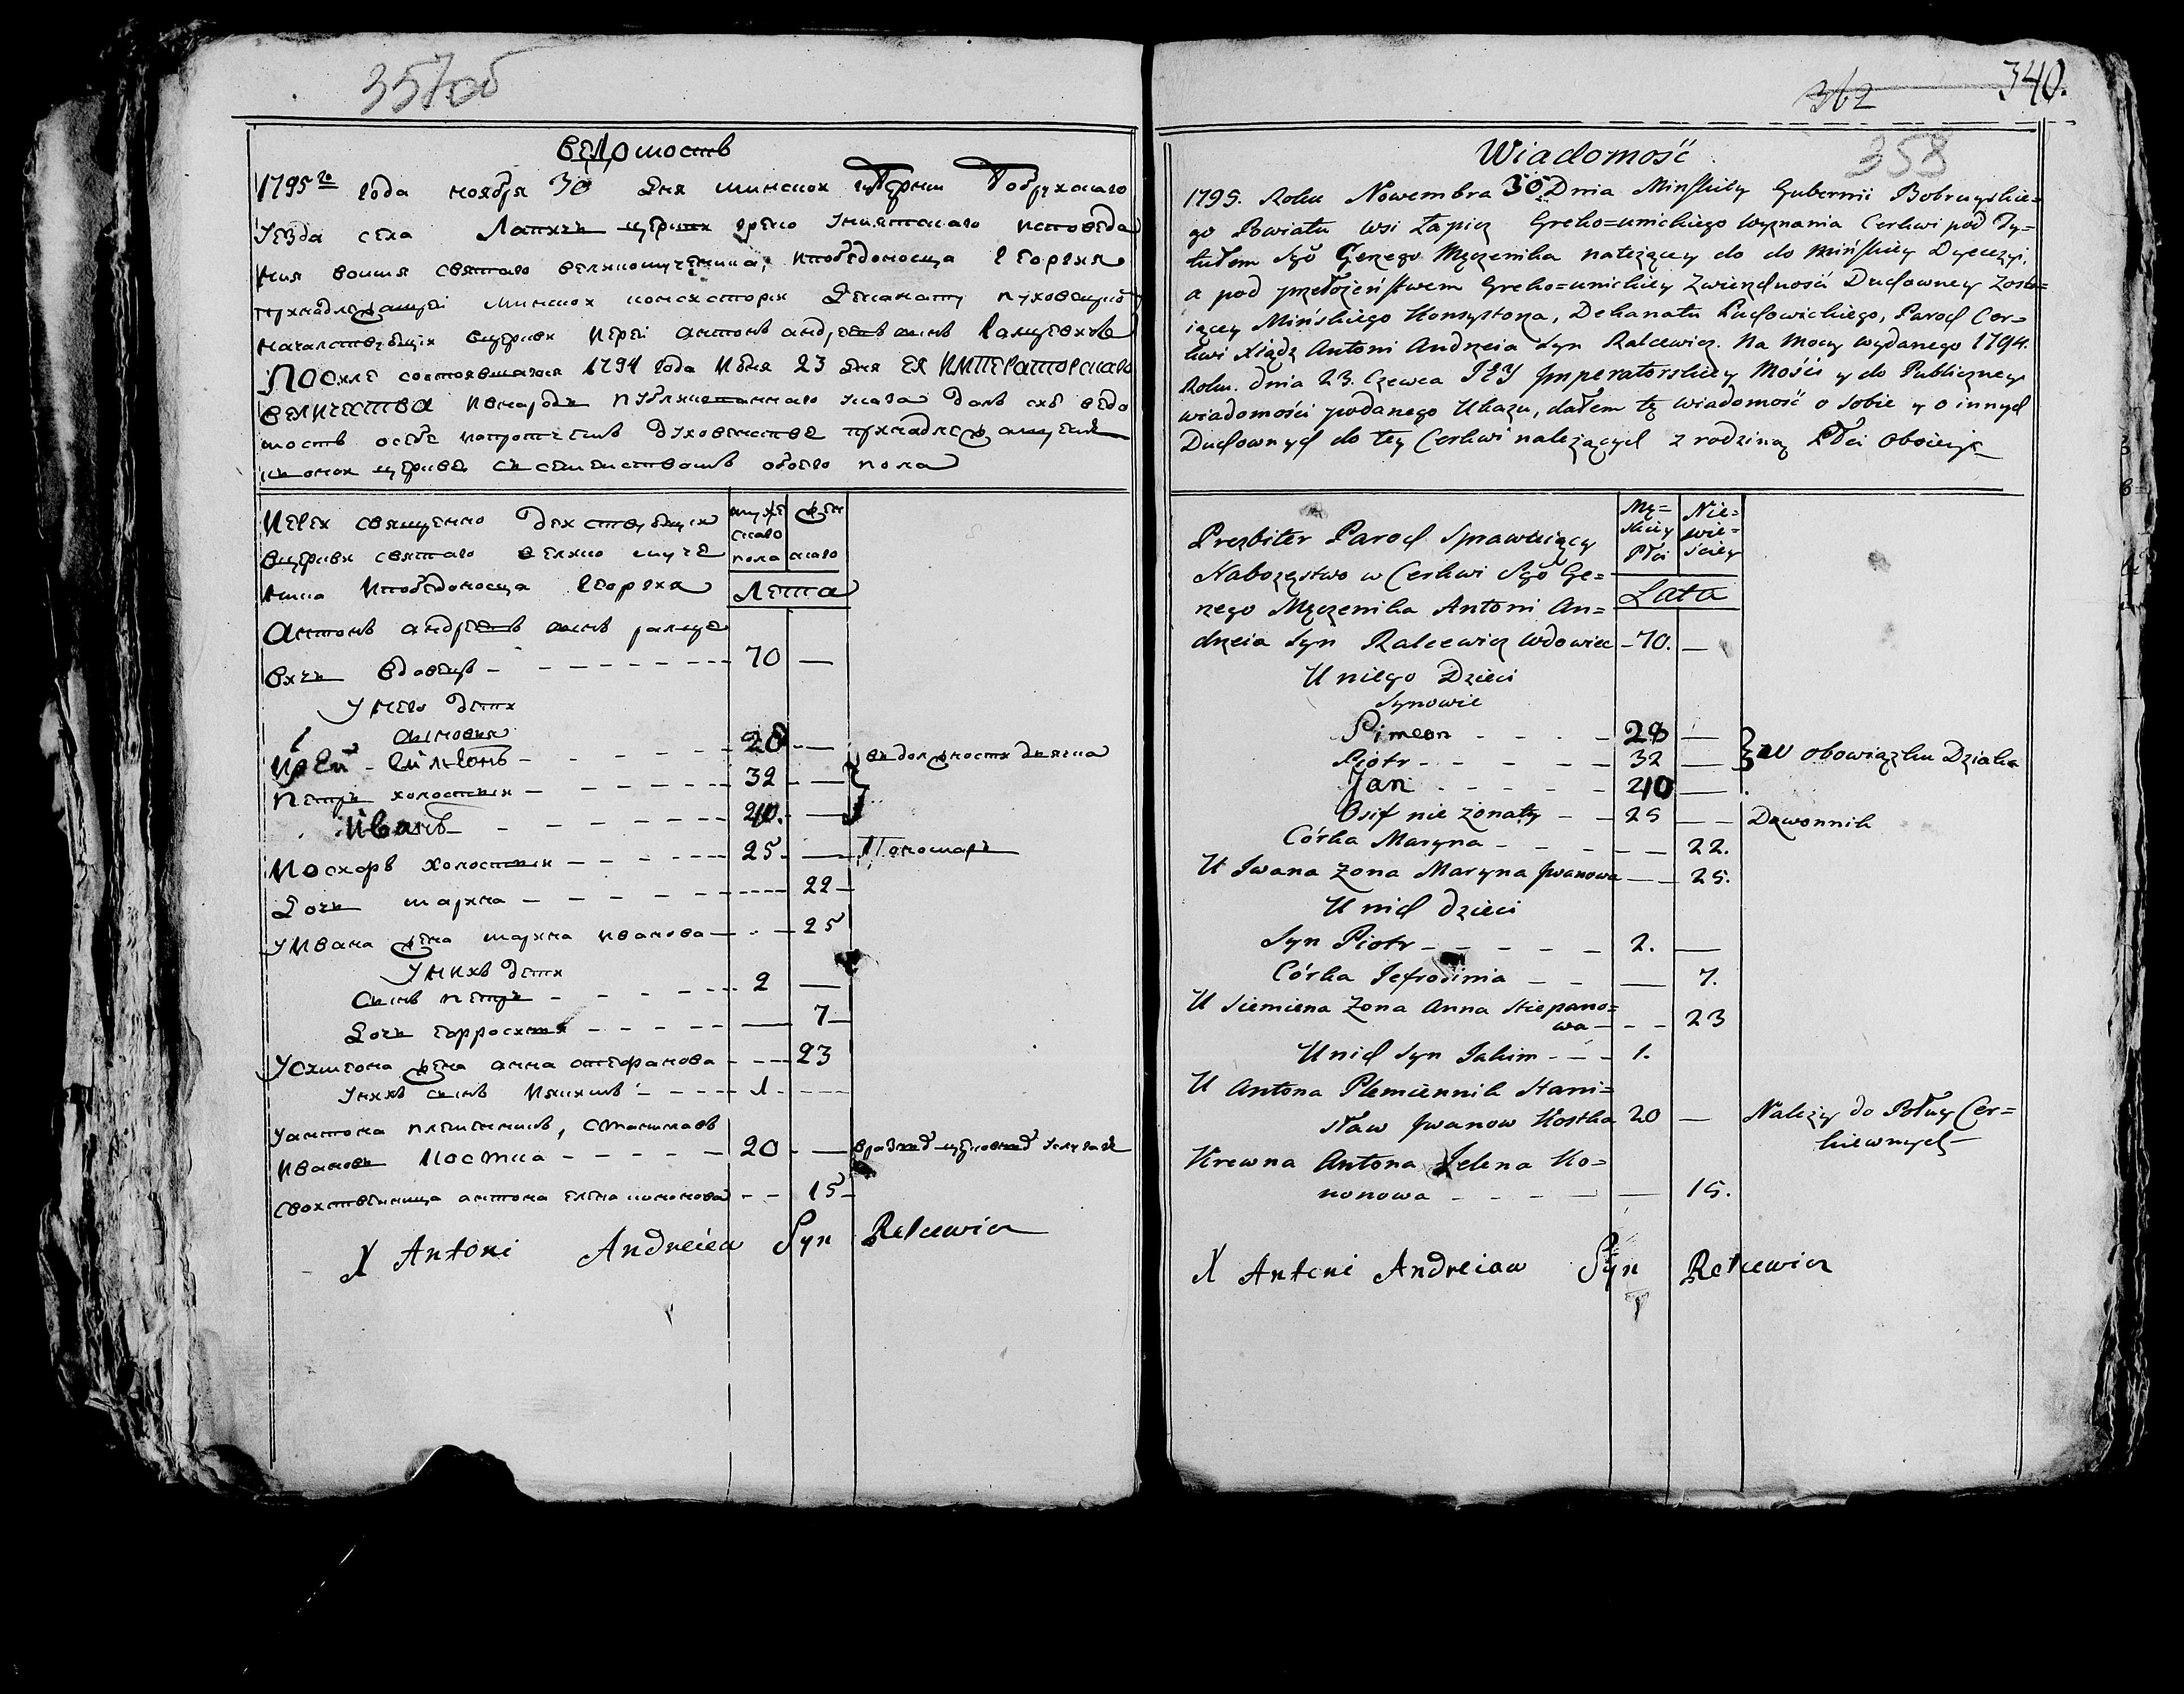 357об
ведомость
1795го года ноября 30 дня минской губернии Бобруйскаго
уезда села Лапичъ церкви греко униятскаго исповеда
ния во имя святаго великомученика, ипобедоносца Георгия
принадлежащей минской консистории деканату пуховецкому
началствующей вцеркви иерей антонъ андреевъ сынъ Ралцевичъ
После состоявшагося 1794 года июня 23 дня ЕЯ ИМПЕРАТОРСКАГО
величества ивнародъ публикованнаго указа далъ сию ведо
мость осебе ипротчемъ духовенстве принадлежащемъ
къ оной церкве съ семействомъ обоего пола
Иерей священно действующий
вцеркви святаго велико муче
ника ипобедоносца Георгия
антонъ андреевъ сынъ ралце
вичъ вдовецъ - 70 —
мужескаго пола
женскаго
Лета
У него дети
сыновья
Иерей Симеонъ - 28 —
петръ холостый - 32 —
въ должности дьячка
Иванъ - 40. —
Иосифъ холостый - 25 — Пономарь
Дочь марина - 22
У Ивана жена марина иванова - 25
У нихъ дети
сынъ петръ - 2 —
Дочь евросимия — 7
У симеона жена анна стефанова - 23
У нихъ сынъ Иякимъ - 1
У антона племенникъ, станиславъ
ивановъ Костка - 20 —
свойственница антона елена кононова - 15
X Antoni Andreiew Syn Ralcewicz
362 340.
358
Wiadomość
1795. Roku Nowembra 30 Dnia Minskiey Gubernii Bobruyskie=
go Powiatu wsi Łapicz Greko=unickiego wyznania Cerkwi pod Ty=
tułem Sgo Gerzego Męczenika należący do do Mińskiey Dyecezyi,
a pod przełożeństwem Greko=unickiey Zwierzchności Duchowney zosta=
iącey Mińskiego Konsystorza, Dekanatu Puchowickiego, Paroch Cer=
kwi Xiądz Antoni Andrzeia Syn Ralcewicz. Na Mocy wydanego 1794.
Roku. dnia 23. Czewca JEY Jmperatorskiey Mości y do Publiczney
wiadomości podanego Ukazu, dałem tę wiadomość o sobie y o innych
Duchownych do tey Cerkwi należących z rodziną Płci oboiey
Prezbiter Paroch Sprawuiący
Nabożęstwo w Cerkwi Sgo Ge=
rzego Męczenika Antoni An=
drzeia Syn Ralcewicz Wdowiec - 70. —
Mę=
skiey
Płci
Nie=
wie=
ściey
Lata
U niego Dzieci
Synowie
Simeon - 28 —
Piotr - 32 — w obowiązku Dziaka
Jan - 40 —
Osif nie żonaty - 25 — Dzwonnik
Córka Maryna - 22.
U Iwana Żona Maryna Jwanowa — 25.
U nich dzieci
Syn Piotr - 2. —
Córka Jefrosinia — 7.
U Siemiena Żona Anna Stiepano=
wa - 23
U nich Syn Jakim - 1.
U Antona Plemiennik Stani=
sław Jwanow Kostka 20 — Należy do Posług Cer=
kiewnych
Krewna Antona Jelena Ko=
nonowa — 15.
X Antoni Andreiaw Syn Ralcewicz